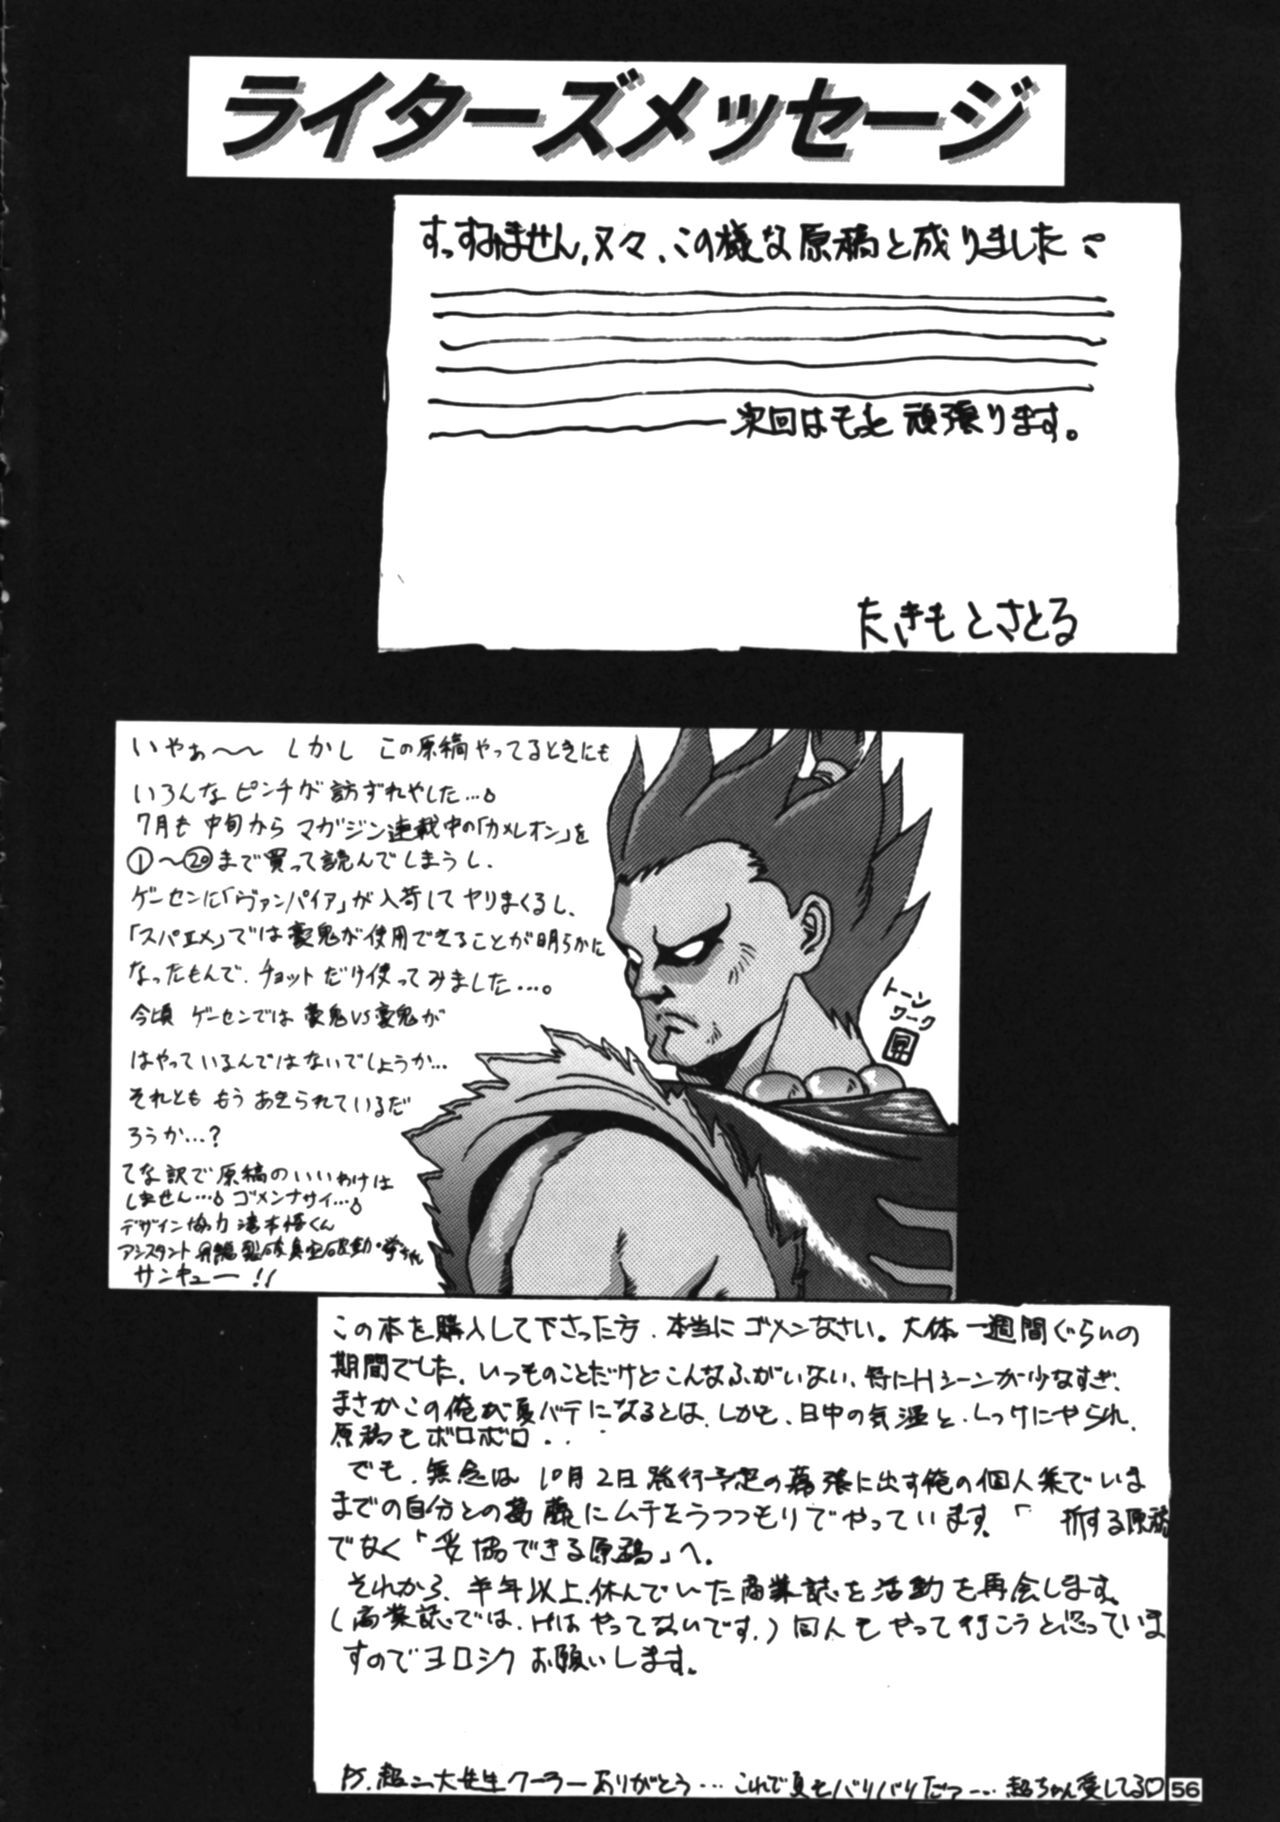 ライターズメッセージ
すっすみません,又々、この様な原稿と成りました
次回はもっと頑張ります。
たきもとさとる
いやぁ〜〜 しかし この原稿やってるときにも
いろんなピンチが訪ずれやした…。
7月も中旬から マガジン連載中の「カメレオン」を
①〜⑳まで買って読んでしまうし、
ゲーセンに「ヴァンパイア」が入荷してヤリまくるし、
「スパエメ」では豪鬼が使用できることが明らかに
なったもんで、チョットだけ使ってみました…。
今頃 ゲーセンでは 豪鬼VS豪鬼が
はやっているんではないでしょうか…
それとも もう あきられているだ
ろうか…?
てな訳で原稿のいいわけは
しません…。ゴメンナサイ…。
デザイン協力 滝本悟くん
アシスタント
サンキュー!!
トーン
ワーク
昇
この本を購入して下さった方、本当にゴメンなさい。大体一週間ぐらいの
期間でした。いつものことだけどこんなふがいない、特にHシーンが少なすぎ、
まさかこの俺が夏バテになるとは、しかも、日中の気温と、しっけにやられ、
原稿もボロボロ・・
でも、無念は10月2日発行予定の幕張に出す俺の個人集でいま
までの自分との葛藤にムチをうつつもりでやっています。「 折する原稿
でなく「妥協できる原稿」へ。
それから、半年以上、休んでいた商業誌を活動を再会します。
(商業誌では、Hはやってないです。)同人もやって行こうと思っていま
すのでヨロシクお願いします。
PS.超二大先生クーラーありがとう…これで夏もバリバリだっ…超ちゃん愛してる♡
56